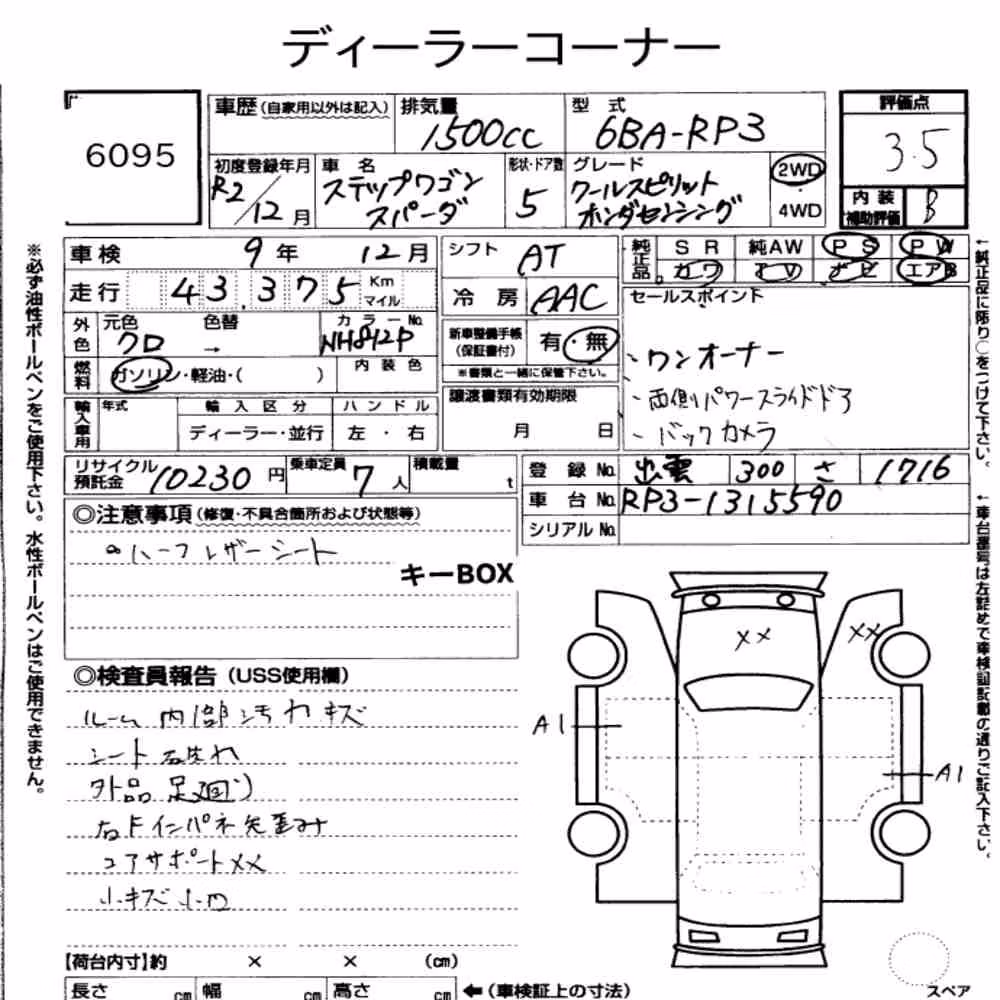 ディーラーコーナー
6095
車歴(自家用以外は記入)
排気量
1500cc
型式
6BA-RP3
評価点
3.5
初度登録年月
R2/12月
車名
ステップワゴン
スパーダ
形状・ドア数
5
グレード
クールスピリット
ホンダセンシング
2WD
・
4WD
内装
補助評価
B
車検 9年 12月
シフト AT
純正品 SR 純AW PS PW
カワ TV ナビ エアB
走行 43,375 Km マイル
冷房 AAC
セールスポイント
外色 元色 色替 カラーNo.
クロ → NH842P
新車整備手帳
(保証書付)
有・無
※書類と一緒に保管下さい。
、ワンオーナー
、両側パワースライドドア
、バックカメラ
燃料 ガソリン・軽油・( ) 内装色
輸入車用 年式 輸入区分 ハンドル
ディーラー・並行 左・右
譲渡書類有効期限
月 日
リサイクル預託金 10230円 乗車定員 7人 積載量 t
登録No. 出雲 300 さ 1716
車台No. RP3-1315590
シリアルNo.
◎注意事項(修復・不具合箇所および状態等)
ハーフレザーシート
キーBOX
◎検査員報告(USS使用欄)
ルーム内部汚れキズ
シート
外品 足廻り
右Fインパネ先歪み
コアサポートXX
小キズ 小凹
XX
XX
A1
A1
【荷台内寸】約 × × (cm)
長さ cm 幅 cm 高さ cm ←(車検証上の寸法)
スペア
※必ず油性ボールペンをご使用下さい。水性ボールペンはご使用できません。
←純正品に限り○をつけて下さい。
←車台番号は左詰めで車検証記載の通りご記入下さい。